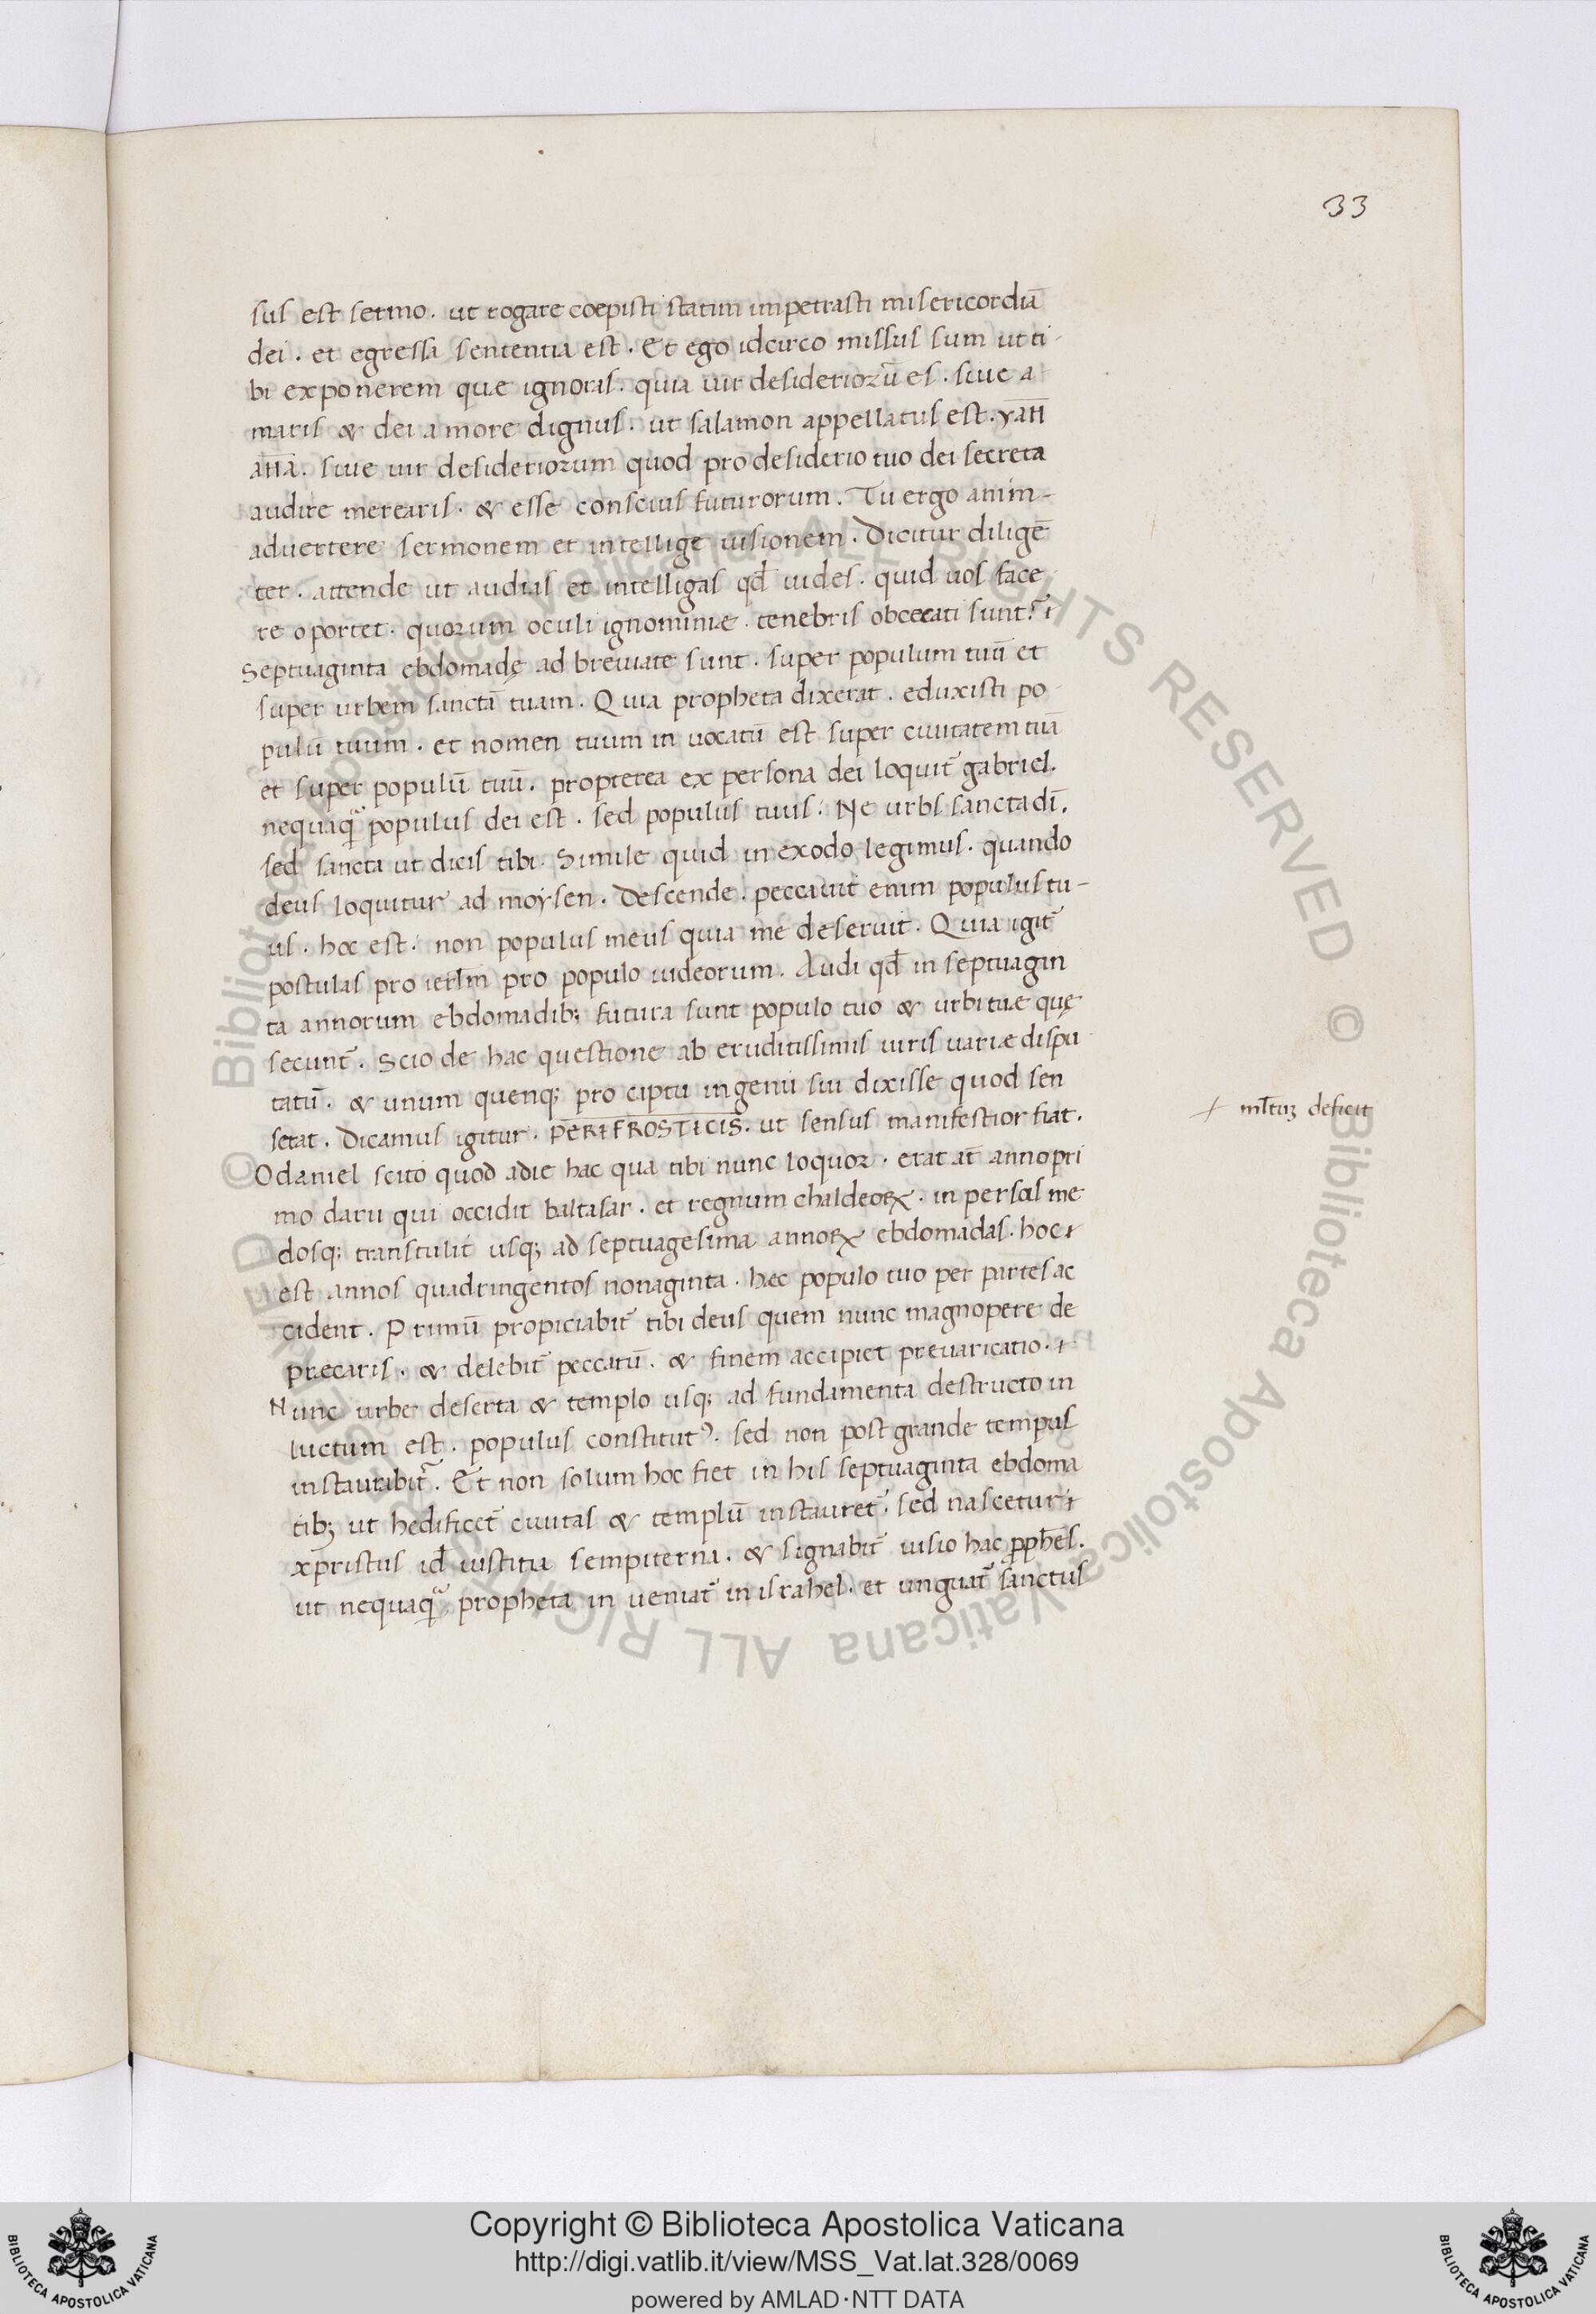 33
sus est sermo. ut rogare coepisti statim impetrasti misericordiā
dei. et egressa sententia est. Et ego idcirco missus sum ut ti-
bi exponerem quæ ignoras. quia uir desideriorū es. siue a
maris & dei amore dignus. ut salamon appellatus est. yañ
añā. siue uir desideriorum quod pro desiderio tuo dei secreta
audire merearis. & esse conscius futurorum. Tu ergo anim-
aduertere sermonem et intellige uisionem. Dicitur diligē
ter. attende ut audias et intelligas qđ uides. quid uos face
re oportet. quorum oculi ignominiæ. tenebris obcecati sunt
Septuaginta ebdomadę ad breuiate sunt. super populum tuū et
super urbem sanctā tuam. Quia propheta dixerat. eduxisti po
pulū tuum. et nomen tuum in uocatū est super ciuitatem tuā
et super populū tuū. propterea ex persona dei loquit̃ gabriel.
nequaq̃ populus dei est. sed populus tuus. Ne urbs sancta dī.
sed sancta ut dicis tibi. Simile quid in exodo legimus. quando
deus loquitur ad moysen. Descende. peccauit enim populus tu-
us. hoc est. non populus meus quia me deseruit. Quia igit̃
postulas pro ierłm pro populo iudeorum. Audi qđ in septuagin
ta annorum ebdomadib; futura sunt populo tuo & urbi tuæ quę
secunt̃. Scio de hac questione ab eruditissimis uiris uariæ dispu
tatū. & unum quenq; pro ciptu ingenii sui dixisse quod sen
serat. Dicamus igitur. PERIFROSTICIS. ut sensus manifestior fiat.
O daniel scito quod a die hac qua tibi nunc loquor. erat aūt anno pri
mo darii qui occidit baltasar. et regnum chaldeoꝝ. in persas me
dosq; transtulit usq; ad septuagesima annoꝝ ebdomadas. hoc
est annos quadringentos nonaginta. hæc populo tuo per partes ac
cident. Primū propiciabit̃ tibi deus quem nunc magnopere de
præcaris. & delebit̃ peccatū. & finem accipiet preuaricatio.
Nunc urbe deserta & templo usq; ad fundamenta destructo in
luctum est. populus constitutꝰ. sed non post grande tempus
instaurabit̃. Et non solum hoc fiet in his septuaginta ebdoma
tib; ut hedificet̃ ciuitas & templū instauret̃. sed nascetur
xpristus id iustitia sempiterna. & signabit̃ uisio hac
ut nequaq̃ propheta in ueniat̃ in israhel. et unguat̃ sanctus
deficit
© Biblioteca Apostolica Vaticana ALL RIGHTS RESERVED © Biblioteca Apostolica Vaticana ALL RIGHTS RESERVED
Copyright © Biblioteca Apostolica Vaticana
http://digi.vatlib.it/view/MSS_Vat.lat.328/0069
powered by AMLAD·NTT DATA
BIBLIOTECA APOSTOLICA VATICANA
BIBLIOTECA APOSTOLICA VATICANA